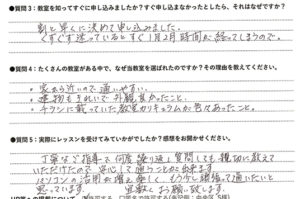 ●質問3：教室を知ってすぐに申し込みましたか？すぐ申し込まなかったとしたら、それはなぜですか？
割と早くに決めて申し込みました。
ぐずぐず迷っているとすぐ1月2月時間が経ってしまうので。
●質問4：たくさんの教室がある中で、なぜ当教室を選ばれたのですか？その理由を教えてください。
・家から近いので通いやすい。
・建物もきれいで外観が良かったこと。
・チラシに載っていた教室カリキュラムが色々あったこと。
●質問5：実際にレッスンを受けてみていかがでしたか？感想をお聞かせください。
丁寧なご指導で何度繰り返し質問しても親切に教えて
いただけたので安心して通うことが出来ます。
パソコンの活用が増え楽しく、もう少し頑張って通いたいと
思っています。
お願い致します。